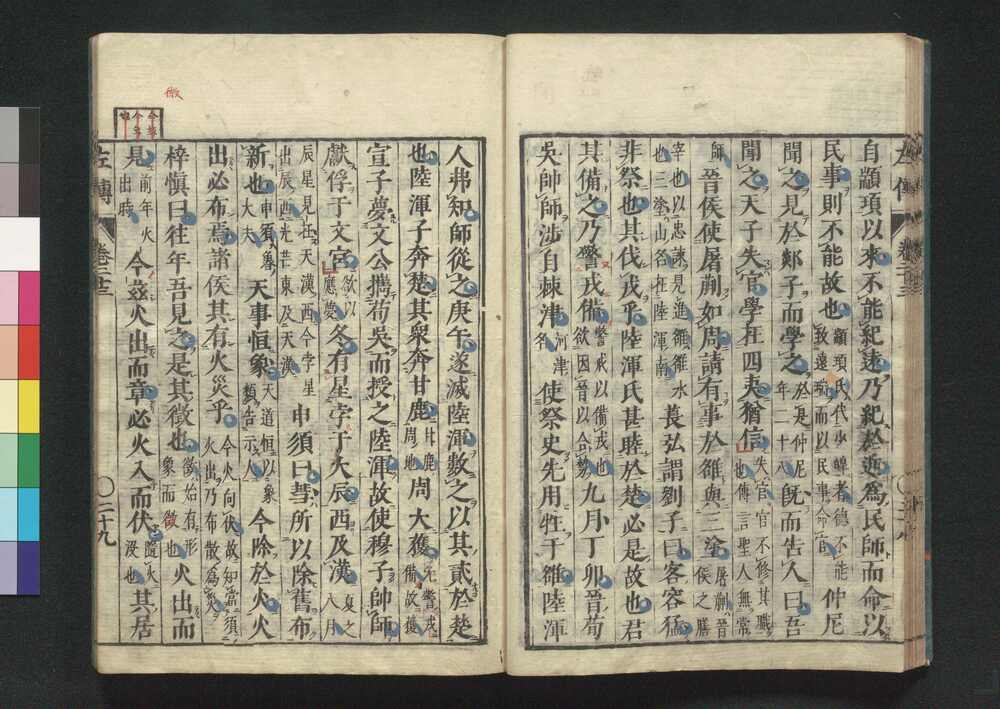 自顓頊以來不能紀遠乃紀於近爲民師而命以
民事則不能故也顓頊氏代少皞者德不能致遠瑞而以民事命官仲尼
聞之見於郯子而學之於是仲尼年二十八旣而告人曰吾
聞之天子失官學在四夷猶信失官官不修其職也傳言聖人無常
師晉侯使屠蒯如周請有事於雒與三塗屠蒯晉侯之膳
宰也以忠諫見進雒雒水也三塗山名在陸渾南萇弘謂劉子曰客容猛
非祭也其伐戎乎陸渾氏甚睦於楚必是故也君
其備之乃警戎備警戒以備戎也欲因晉以合勢九月丁卯晉荀
吳帥師涉自棘津河津名使祭史先用牲于雒陸渾
人弗知師從之庚午遂滅陸渾數之以其貳於楚
也陸渾子奔楚其衆奔甘鹿甘鹿周地周大獲先警戎備故獲
宣子夢文公攜荀吳而授之陸渾故使穆子帥師
獻俘于文宮欲以應夢冬有星孛于大辰西及漢夏之八月
辰星見在天漢西今孛星出辰西光芒東及天漢申須曰彗所以除舊布
新也申須魯大夫天事恒象天道恒以象類告示人今除於火火
出必布焉諸侯其有火災乎今火向伏故知當須火出乃布散爲災
梓愼曰往年吾見之是其徵也徵始有形象而微也火出而
見前年火出時今茲火出而章必火入而伏隨火沒也其居
左傳
卷二十三
二十九
左傳
微